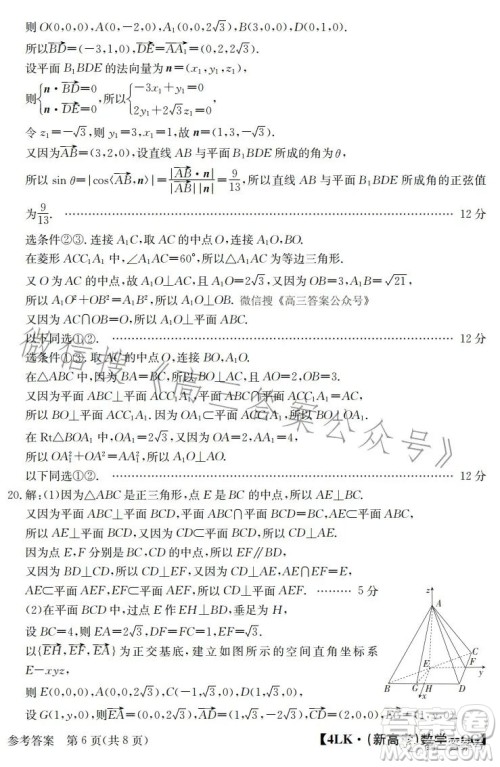 则O(0,0,0),A(0,-2,0),A₁(0,0,2√3),B(3,0,0),D(0,1,0).
所以BD→=(-3,1,0),DE→=AA₁→=(0,2,2√3).
设平面B₁BDE的法向量为n=(x₁,y₁,z₁),
则{n·BD→=0, n·DE→=0,所以{-3x₁+y₁=0 2y₁+2√3z₁=0.
令z₁=-√3,则y₁=3,x₁=1,故n=(1,3,-√3).
又因为AB→=(3,2,0),设直线AB与平面B₁BDE所成的角为θ,
所以sin θ=|cos⟨AB→,n⟩|=|AB→·n|/|AB→||n|=9/13,所以直线AB与平面B₁BDE所成角的正弦值
为9/13. …… 12分
选条件②③.连接A₁C,取AC的中点O,连接A₁O,BO.
在菱形ACC₁A₁中,∠A₁AC=60°,所以△A₁AC为等边三角形.
又O为AC的中点,故A₁O⊥AC,且A₁O=2√3,又因为A₁B=√21,
所以A₁O²+OB²=A₁B²,所以A₁O⊥OB. 微信搜《高三答案公众号》
又因为AC∩OB=O,所以A₁O⊥平面ABC.
以下同选①②. …… 12分
选条件①③.取AC的中点O,连接BO,A₁O.
在△ABC中,因为BA=BC,所以BO⊥AC,且AO=2,OB=3.
又因为平面ACC₁A₁⊥平面ABC,且平面ACC₁A₁∩平面ABC=AC,
所以BO⊥平面ACC₁A₁.因为OA₁⊂平面ACC₁A₁,所以BO⊥OA₁.
在Rt△BOA₁中,OA₁=2√3,又因为OA=2,AA₁=4,
所以OA₁²+OA²=AA₁²,所以OA₁⊥AO.
以下同选①②. …… 12分
20.解:(1)因为△ABC是正三角形,点E是BC的中点,所以AE⊥BC.
又因为平面ABC⊥平面BCD,平面ABC∩平面BCD=BC,AE⊂平面ABC,
所以AE⊥平面BCD,又因为CD⊂平面BCD,所以CD⊥AE.
因为点E,F分别是BC,CD的中点,所以EF∥BD,
又因为BD⊥CD,所以CD⊥EF,又因为CD⊥AE,AE∩EF=E,
AE⊂平面AEF,EF⊂平面AEF,所以CD⊥平面AEF. …… 5分
(2)在平面BCD中,过点E作EH⊥BD,垂足为H,
设BC=4,则EA=2√3,DF=FC=1,EF=√3.
以{EH→,EF→,EA→}为正交基底,建立如图所示的空间直角坐标系
E-xyz,
则E(0,0,0),A(0,0,2√3),C(-1,√3,0),D(1,√3,0),
设G(1,y,0),则EA→=(0,0,2√3),AD→=(1,√3,-2√3),
z
A
C
E
F
y
B
G
H
D
x
参考答案 第6页(共8页)
【4LK·(新高考)数学
微信搜《高三答案公众号》